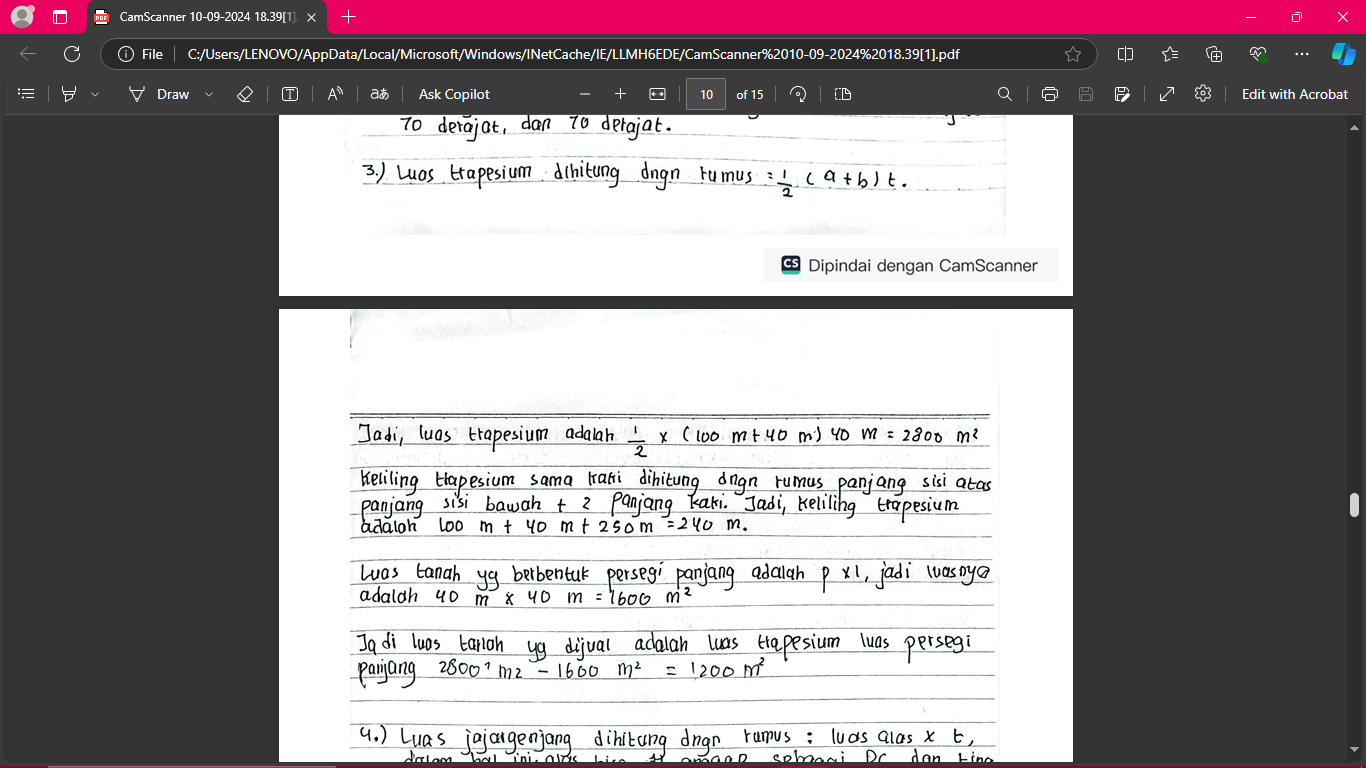 CamScanner 10-09-2024 18.39[1]
File
C:/Users/LENOVO/AppData/Local/Microsoft/Windows/INetCache/IE/LLMH6EDE/CamScanner%2010-09-2024%2018.39[1].pdf
Draw
aあ
Ask Copilot
10 of 15
Edit with Acrobat
70 derajat, dan 70 detajat.
3.) Luas trapesium dihitung dngn rumus : 1/2 (a+b) t.
CS Dipindai dengan CamScanner
Jadi, luas trapesium adalah 1/2 x (100 m + 40 m) 40 m = 2800 m²
Keliling trapesium sama kaki dihitung dngn rumus panjang sisi atas
panjang sisi bawah + 2 Panjang kaki. Jadi, keliling trapesium
adalah 100 m + 40 m + 250 m = 240 m.
Luas tanah yg berbentuk persegi panjang adalah p x l, jadi luasnya
adalah 40 m x 40 m = 1600 m²
Jadi luas tanah yg dijual adalah luas trapesium luas persegi
panjang 2800 m2 - 1600 m² = 1200 m²
4.) Luas jajargenjang dihitung dngn rumus : luas alas x t,